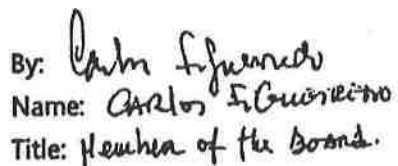 By: Carlos Figueiredo
Name: CARlos FiGueiReiDo
Title: Member of the Board.